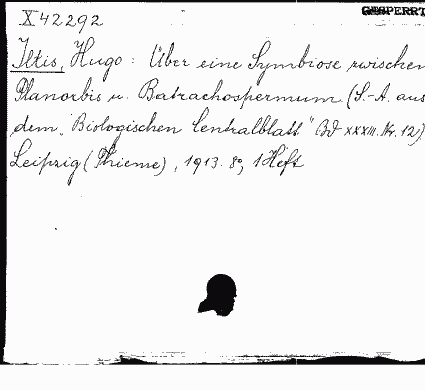 X42292
GESPERRT
Iltis, Hugo: Über eine Symbiose zwischen
Planorbis u. Batrachospermum (S.-A. aus
dem „Biologischen Centralblatt" Bd XXXIII. Nr. 12)
Leipzig (Thieme), 1913. 8°, 1 Heft